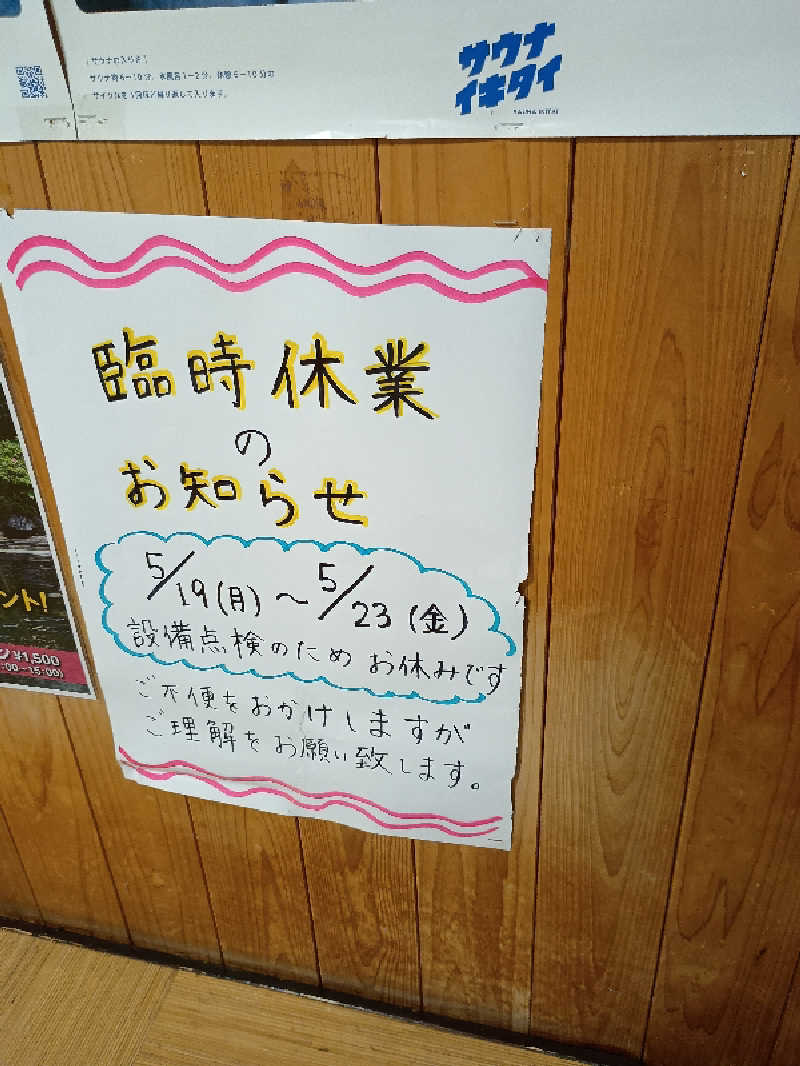 サウナ
イキタイ
SAUNA IKITAI
臨時休業
の
お知らせ
5/19(月)～5/23(金)
設備点検のためお休みです
ご不便をおかけしますが
ご理解をお願い致します。
ント!
¥1,500
:00~15:00)